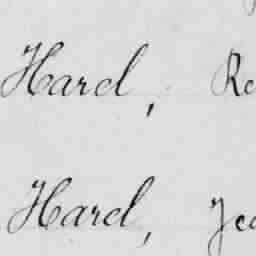 Harel, Re
Harel, Jea